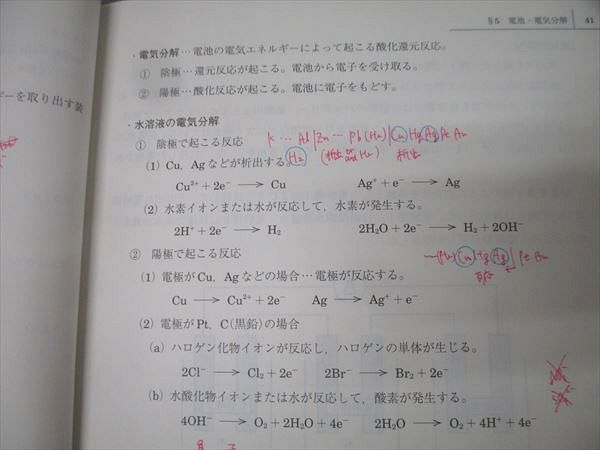 §5 電池・電気分解 41
・電気分解…電池の電気エネルギーによって起こる酸化還元反応。
① 陰極…還元反応が起こる。電池から電子を受け取る。
② 陽極…酸化反応が起こる。電池に電子をもどす。
ギーを取り出す装
・水溶液の電気分解
① 陰極で起こる反応
K … Al | Zn … Pb (H₂) | Cu Hg Ag Pt Au
(1) Cu, Ag などが析出する。
H₂ (析出 or H₂) 析出
Cu²⁺ + 2e⁻ → Cu Ag⁺ + e⁻ → Ag
(2) 水素イオンまたは水が反応して，水素が発生する。
2H⁺ + 2e⁻ → H₂ 2H₂O + 2e⁻ → H₂ + 2OH⁻
② 陽極で起こる反応
(H₂) Cu Hg Ag | Pt Au
(1) 電極が Cu, Ag などの場合…電極が反応する。
Cu → Cu²⁺ + 2e⁻ Ag → Ag⁺ + e⁻
(2) 電極が Pt, C(黒鉛)の場合
(a) ハロゲン化物イオンが反応し，ハロゲンの単体が生じる。
2Cl⁻ → Cl₂ + 2e⁻ 2Br⁻ → Br₂ + 2e⁻
(b) 水酸化物イオンまたは水が反応して，酸素が発生する。
4OH⁻ → O₂ + 2H₂O + 4e⁻ 2H₂O → O₂ + 4H⁺ + 4e⁻